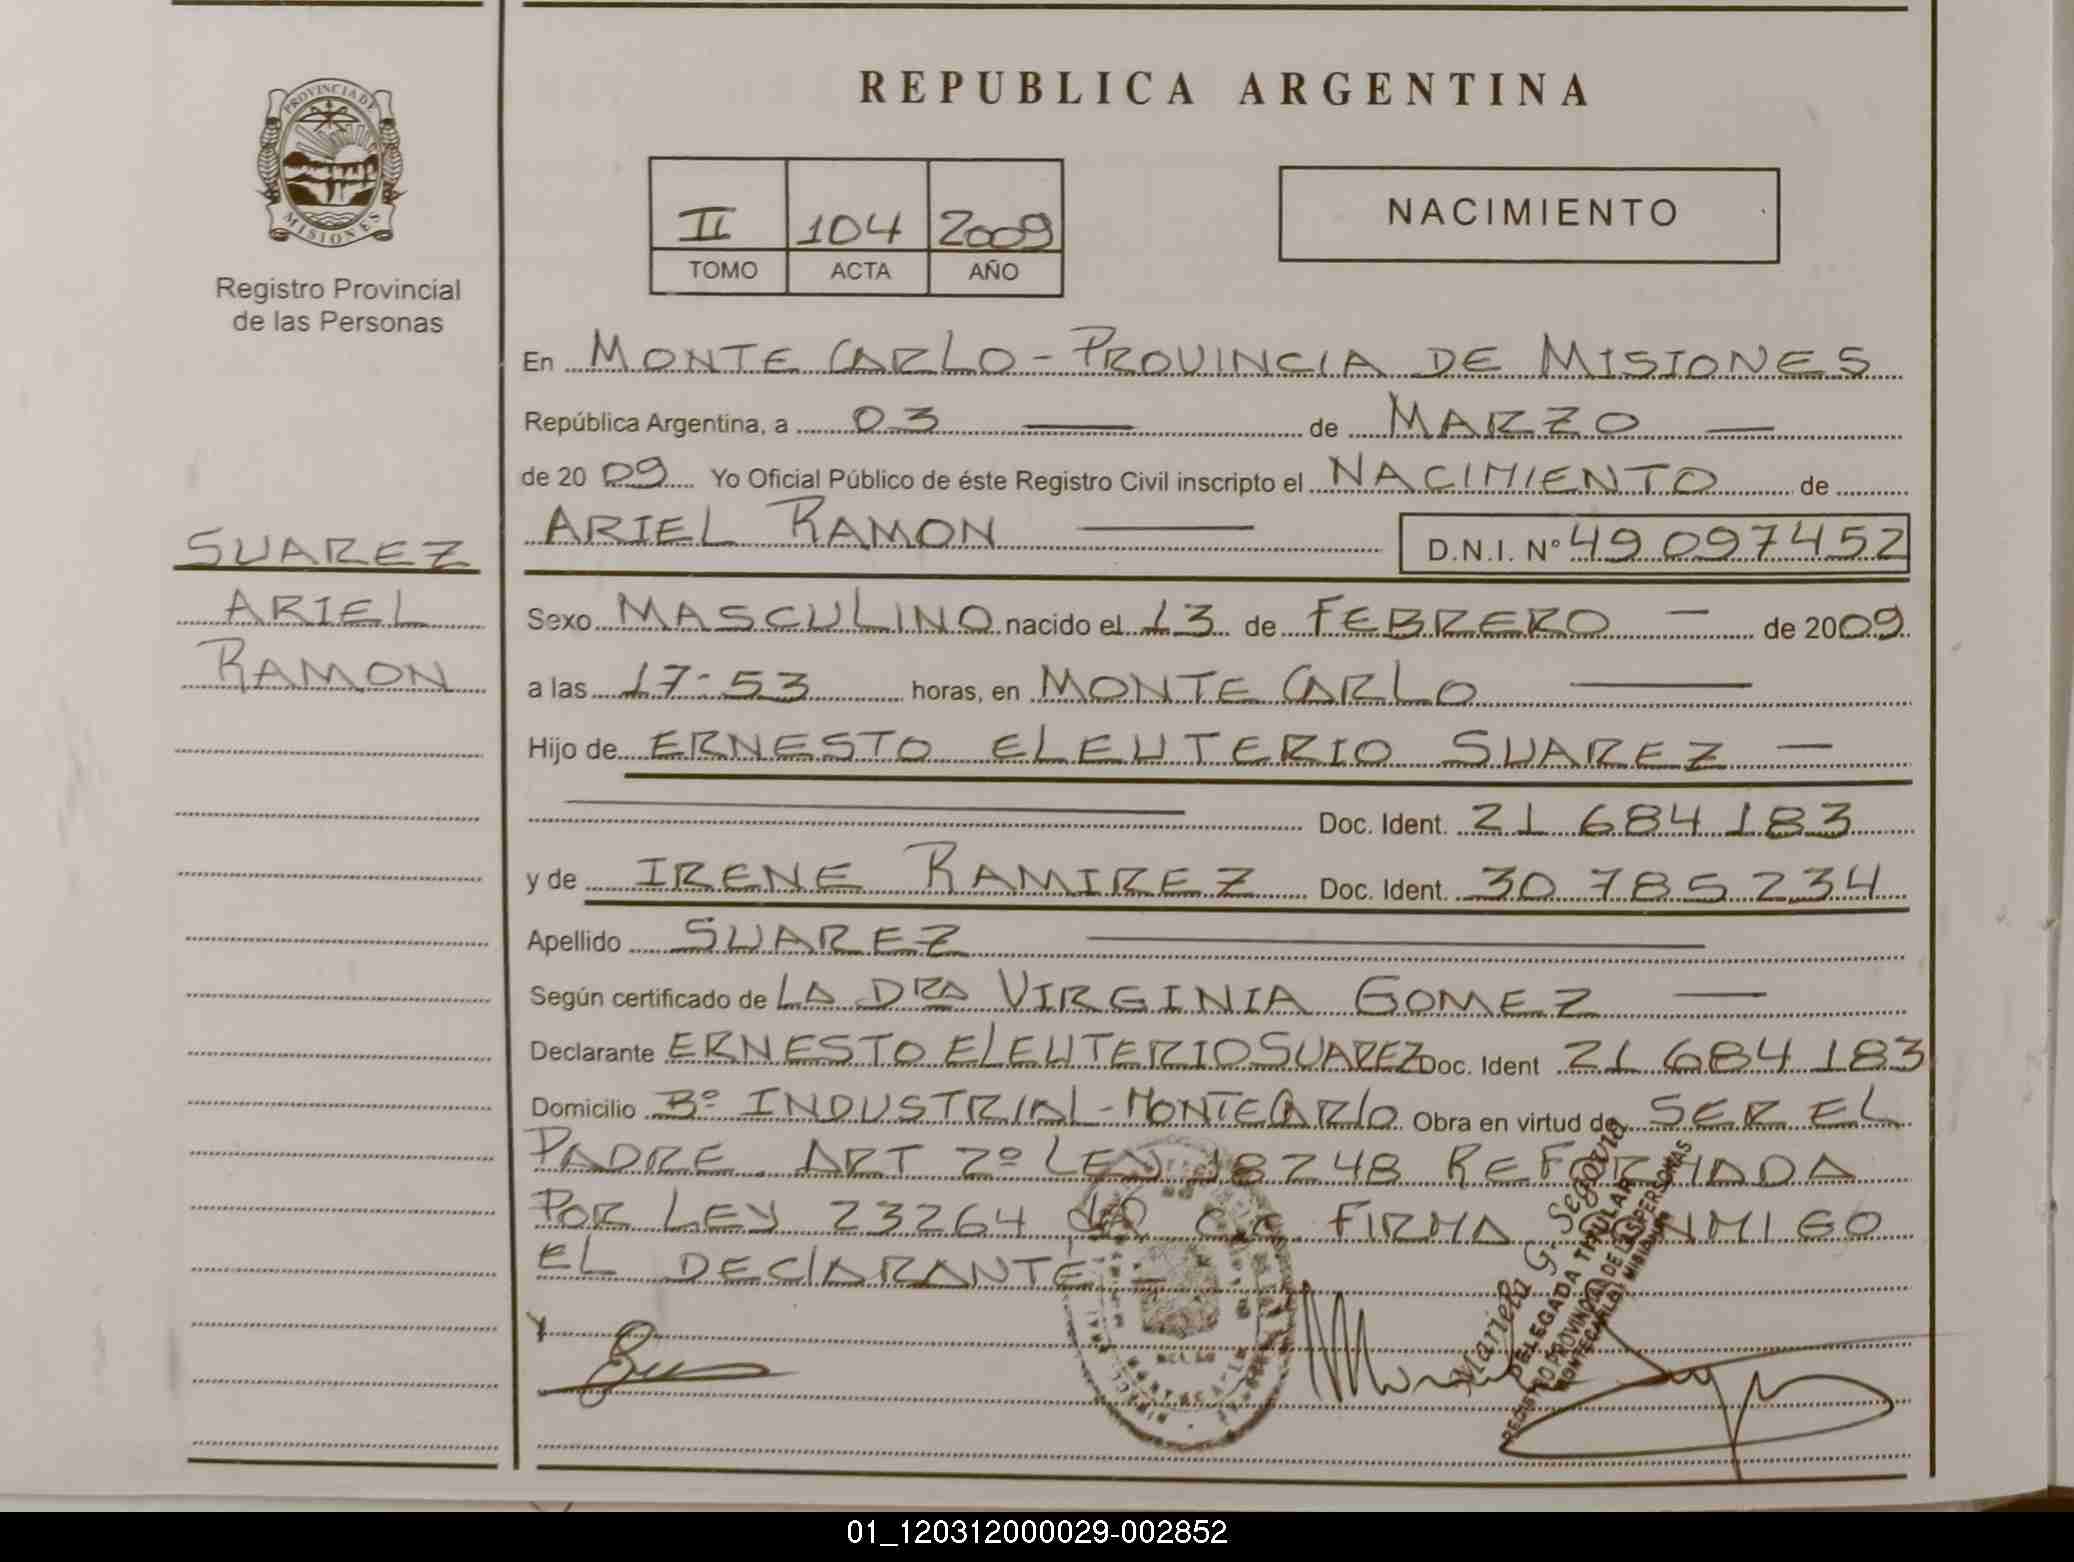 REPUBLICA ARGENTINA
PROVINCIA DE
MISIONES
Registro Provincial
de las Personas
II 104 2009
TOMO ACTA AÑO
NACIMIENTO
En MONTE CARLO - PROVINCIA DE MISIONES
República Argentina, a 03 — de MARZO —
de 20 09 Yo Oficial Público de éste Registro Civil inscripto el NACIMIENTO de
ARIEL RAMON — D.N.I. N° 49 097452
SUAREZ
ARIEL
RAMON
Sexo MASCULINO nacido el 13 de FEBRERO — de 2009
a las 17-53 horas, en MONTE CARLO —
Hijo de ERNESTO ELEUTERIO SUAREZ —
— Doc. Ident. 21 684 183
y de IRENE RAMIREZ Doc. Ident. 30 785 234
Apellido SUAREZ —
Según certificado de LA DRA VIRGINIA GOMEZ —
Declarante ERNESTO ELEUTERIO SUAREZ Doc. Ident 21 684 183
Domicilio Bº INDUSTRIAL - MONTECARLO Obra en virtud de SER EL
PADRE. ART 2º LEY 18248 REFORMADA
POR LEY 23264 del C.C. FIRMA CONMIGO
EL DECLARANTE. —
Mariela G. Segovia
DELEGADA TITULAR
REGISTRO PROVINCIAL DE LAS PERSONAS
01_120312000029-002852